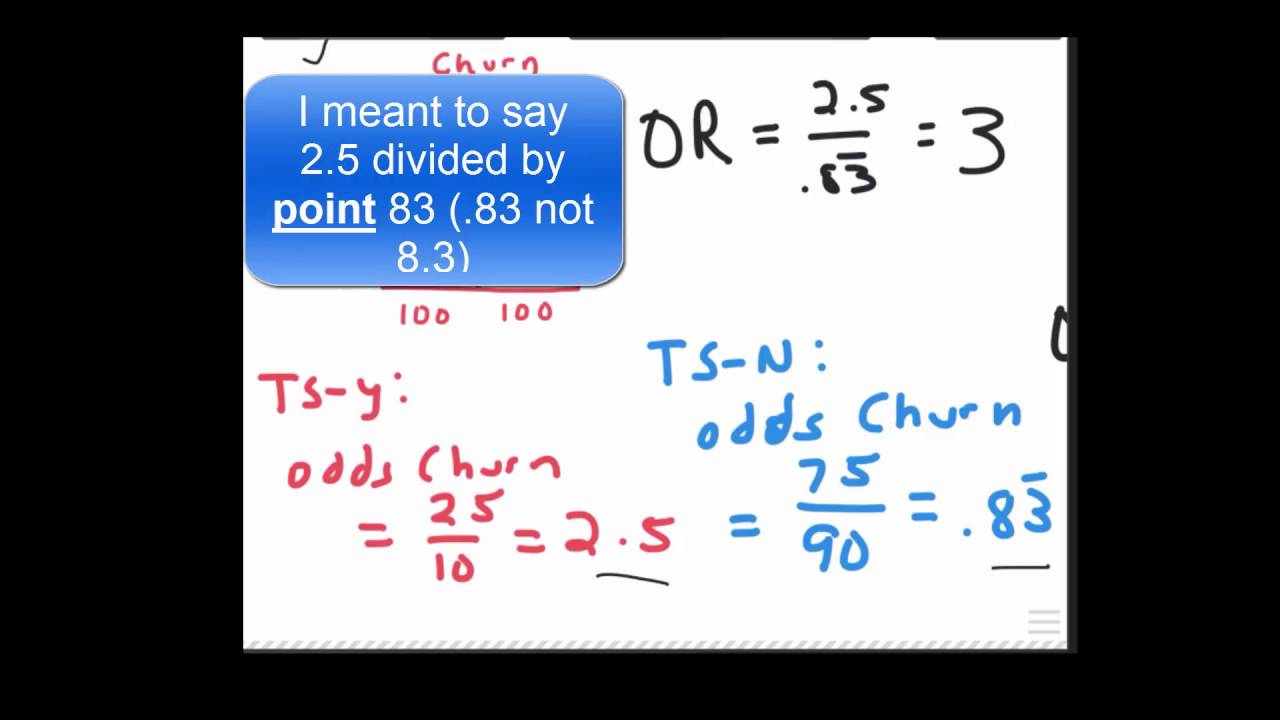 Churn
I meant to say
2.5 divided by
point 83 (.83 not
8.3)
OR = 2.5 / .83̅ = 3
100 100
TS-y:
odds Churn
= 25 / 10 = 2.5
TS-N:
odds Churn
= 75 / 90 = .83̅